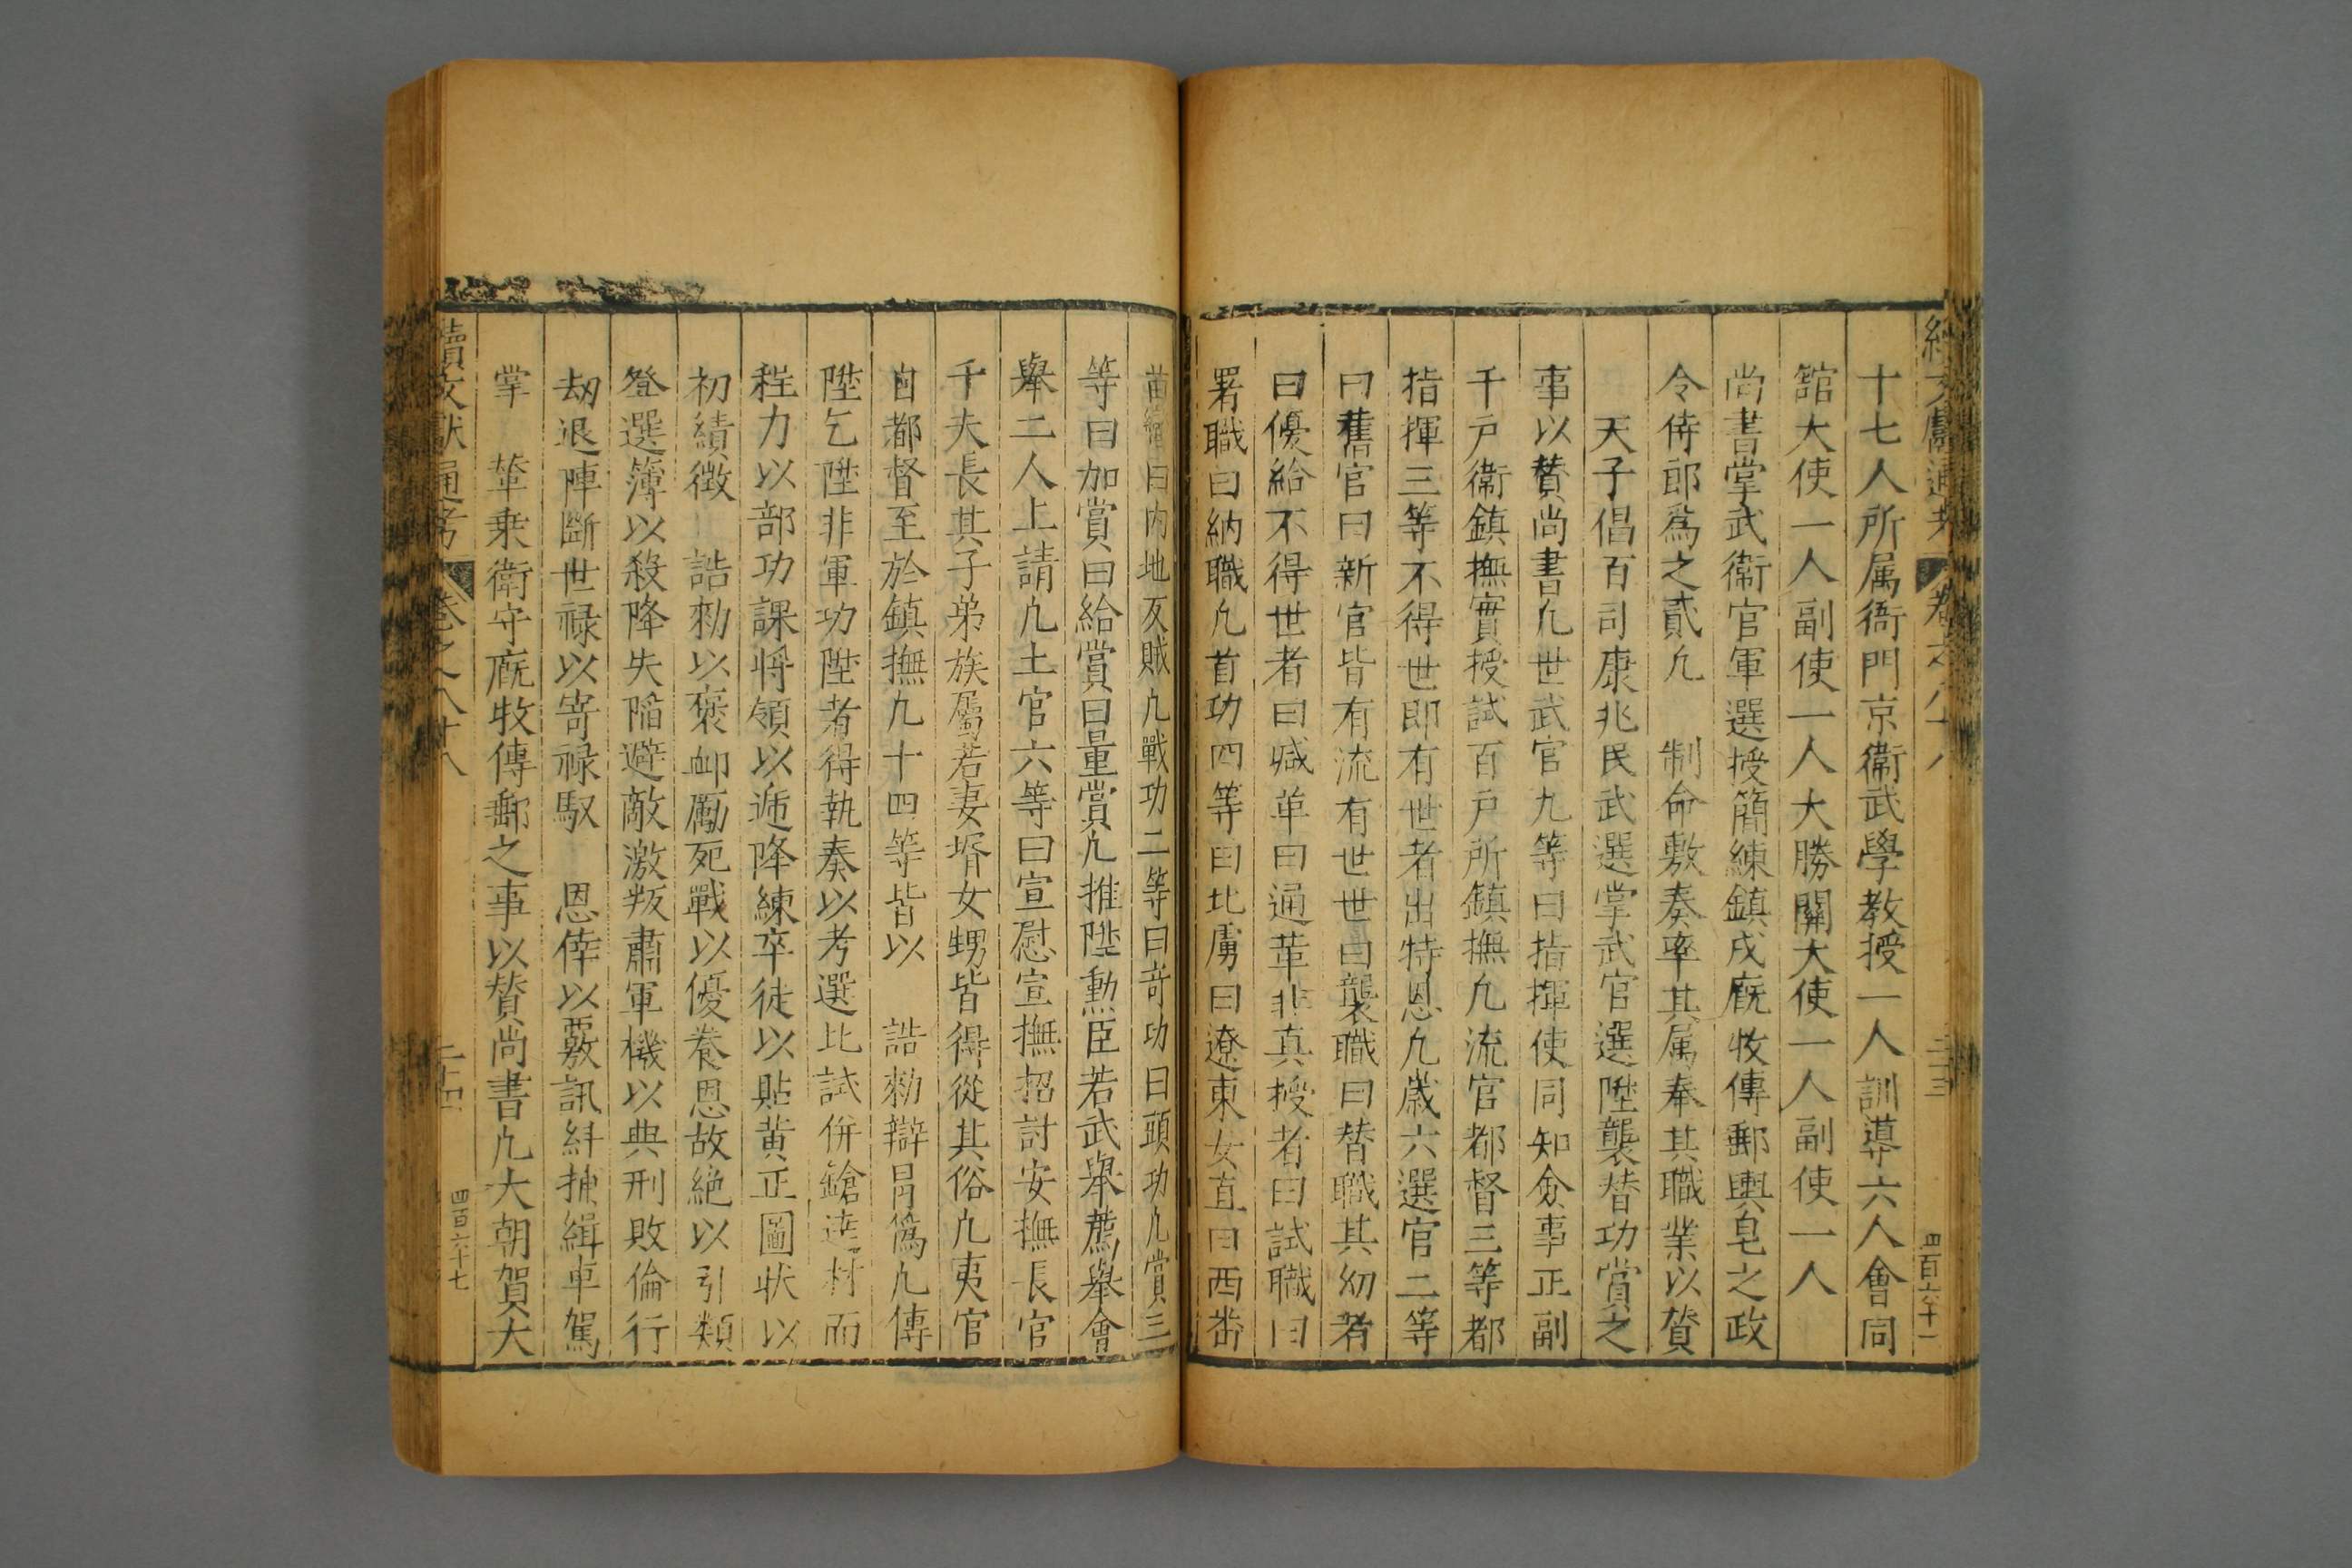 續文獻通考 卷之八十八 二十三 四百六十一
十七人所属衙門京衛武學教授一人訓導六人會同
舘大使一人副使一人大勝關大使一人副使一人
尚書掌武衛官軍選授簡練鎮戍廐牧傳郵輿皂之政
令侍郎爲之貳凢 制命敷奏率其属奉其職業以賛
天子倡百司康兆民武選掌武官選陞襲替功賞之
事以賛尚書凢世武官九等曰指揮使同知僉事正副
千戶衛鎮撫實授試百戶所鎮撫凢流官都督三等都
指揮三等不得世即有世者出特恩凢歲六選官二等
曰舊官曰新官皆有流有世世曰襲職曰替職其幼者
曰優給不得世者曰減革曰通革非真授者曰試職曰
署職曰納職凢首功四等曰北虜曰遼東女直曰西番
苗蠻曰内地反賊凢戰功二等曰竒功曰頭功凢賞三
等曰加賞曰給賞曰量賞凢推陞勳臣若武舉薦舉會
舉二人上請凢土官六等曰宣慰宣撫招討安撫長官
千夫長其子弟族屬若妻壻女甥皆得從其俗凢夷官
自都督至於鎮撫凢十四等皆以 誥勑辯冐僞凢傳
陞乞陞非軍功陞者得執奏以考選比試併鎗逹材而
程力以部功課將領以遞降練卒徒以貼黄正圖狀以
初績徴 誥勑以褒卹厲死戰以優養恩故絶以引類
登選簿以殺降失陷避敵激叛肅軍機以典刑敗倫行
刼退陣斷世禄以寄禄馭 恩倖以覈訊糾捕緝車駕
掌 輦乗衛守廐牧傳郵之事以賛尚書凢大朝賀大
續文獻通考 卷之八十八 二十四 四百六十七